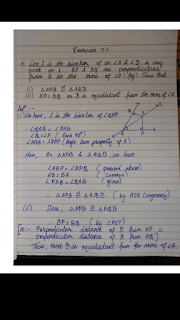 Exercise 7.1
5. Line l is the bisector of an ∠A & B is any
point on l. BP & BQ are perpendiculars
from B to the arms of ∠A (fig). Show that
(i) △APB ≅ △AQB
(ii) BP = BQ or B is equidistant from the arms of ∠A
(i) We have, l is the bisector of ∠QAP
∴ ∠QAB = ∠PAB
∠Q = ∠P (Each 90°)
∠ABQ = ∠ABP (Angle sum property of △)
Now, In △APB & △AQB, we have
∠ABP = ∠ABQ (proved above)
AB = BA (common)
∠PAB = ∠QAB (given)
∴ △APB ≅ △AQB (by ASA congruency)
(ii) Since, △APB ≅ △AQB
∴ BP = BQ (by CPCT)
Perpendicular distance of B from AP =
perpendicular distance of B from AQ]
Thus, point B is equidistant from the arms of ∠A.